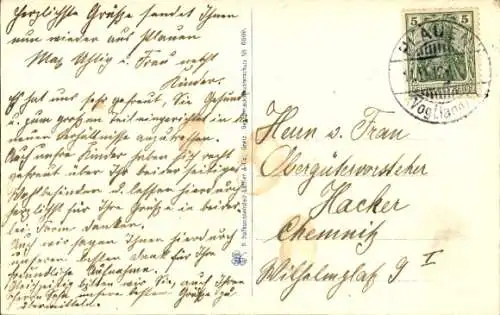 Herzlichste Grüße sendet Ihnen
nun wieder aus Plauen
Max Uhlig u. Frau nebst
Kinder.
Es hat uns sehr gefreut, Sie gesund
u. zum großen Teil eingerichtet in
neuen Verhältnisse anzutreffen.
Auch unsre Kinder haben sich recht
gefreut über Ihr beiderseitiges
Wohlbefinden u. lassen hierdurch
herzlichst für Ihre Grüße in beider-
lei Form danken.
Auch wir sagen Ihnen hierdurch
unseren besten Dank für Ihre
freundliche Aufnahme.
Gleichzeitig bitten wir Sie, auch Ihrem
Herrn Sohn unsere besten Grüße zu
übermitteln.
5 5
PLAUEN
(Vogtland)
Herrn u. Frau
Obergütervorsteher
Hacker
Chemnitz
Wilhelmplatz 9 I